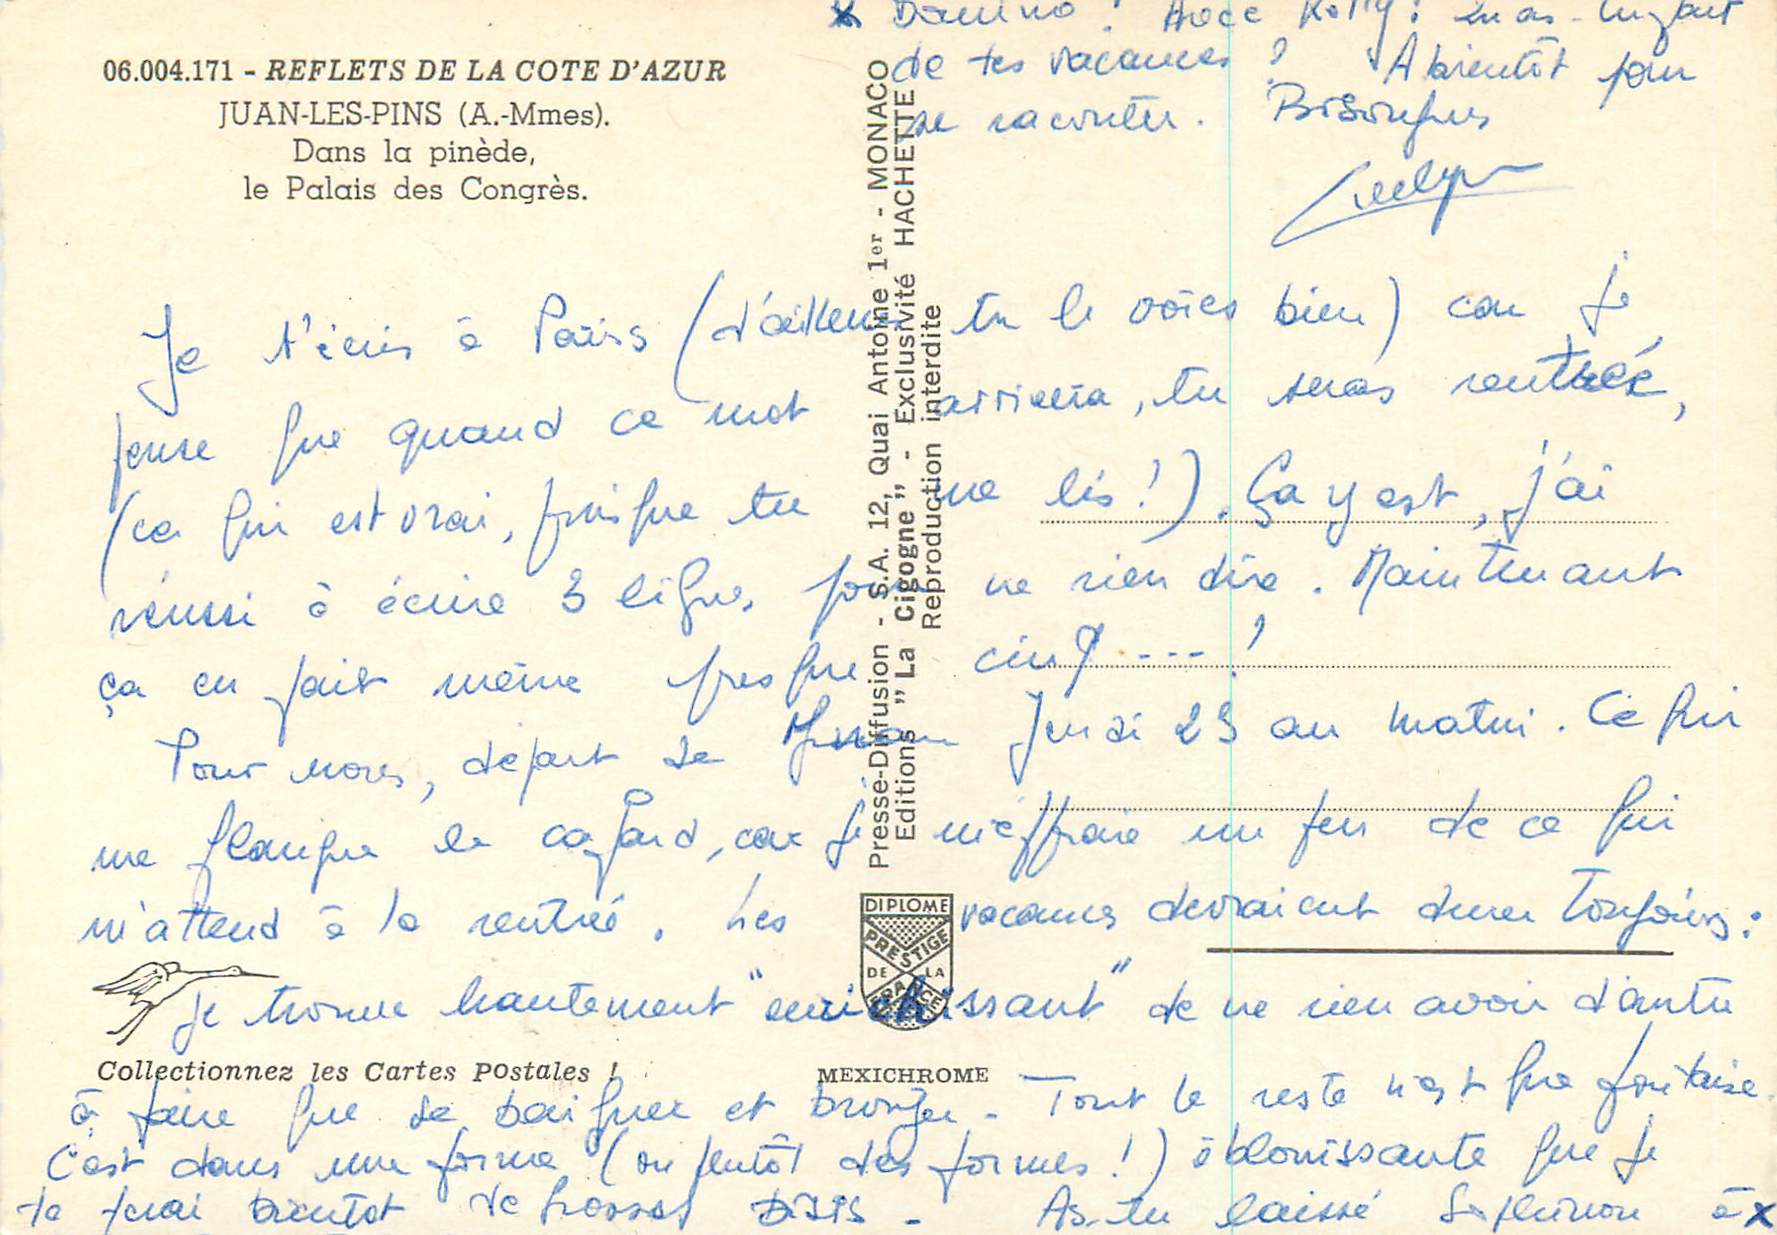 06.004.171 - REFLETS DE LA COTE D'AZUR
JUAN-LES-PINS (A.-Mmes).
Dans la pinède,
le Palais des Congrès.
Je t'écris à Paris (d'ailleurs tu le voies bien) car je
pense que quand ce mot arrivera, tu seras rentrée,
(ce qui est vrai, puisque tu me lis!). Ça y est, j'ai
réussi à écrire 3 lignes pour ne rien dire. Maintenant
ça en fait même presque cinq ---!
Pour nous, départ de Juan Jeudi 29 au matin. Ce qui
me flanque le cafard, car je m'effraie un peu de ce qui
m'attend à la rentrée. Les vacances devraient durer toujours:
Je trouve hautement "enrichissant" de ne rien avoir d'autre
à faire que se baigner et bronzer - Tout le reste n'est que foutaise.
C'est dans une forme (ou plutôt des formes!) éblouissante que je
te ferai bientôt de grosses BISIS - As-tu laissé à x
x Domino! Avec Kelly!
de tes vacances? A bientôt pour
se raconter. Bisougnes
Evelyne
Presse-Diffusion - S.A. 12, Quai Antoine 1er - MONACO
Editions "La Cigogne" - Exclusivité HACHETTE
Reproduction interdite
DIPLOME
PRESTIGE
DE LA
FRANCE
Collectionnez les Cartes Postales !
MEXICHROME